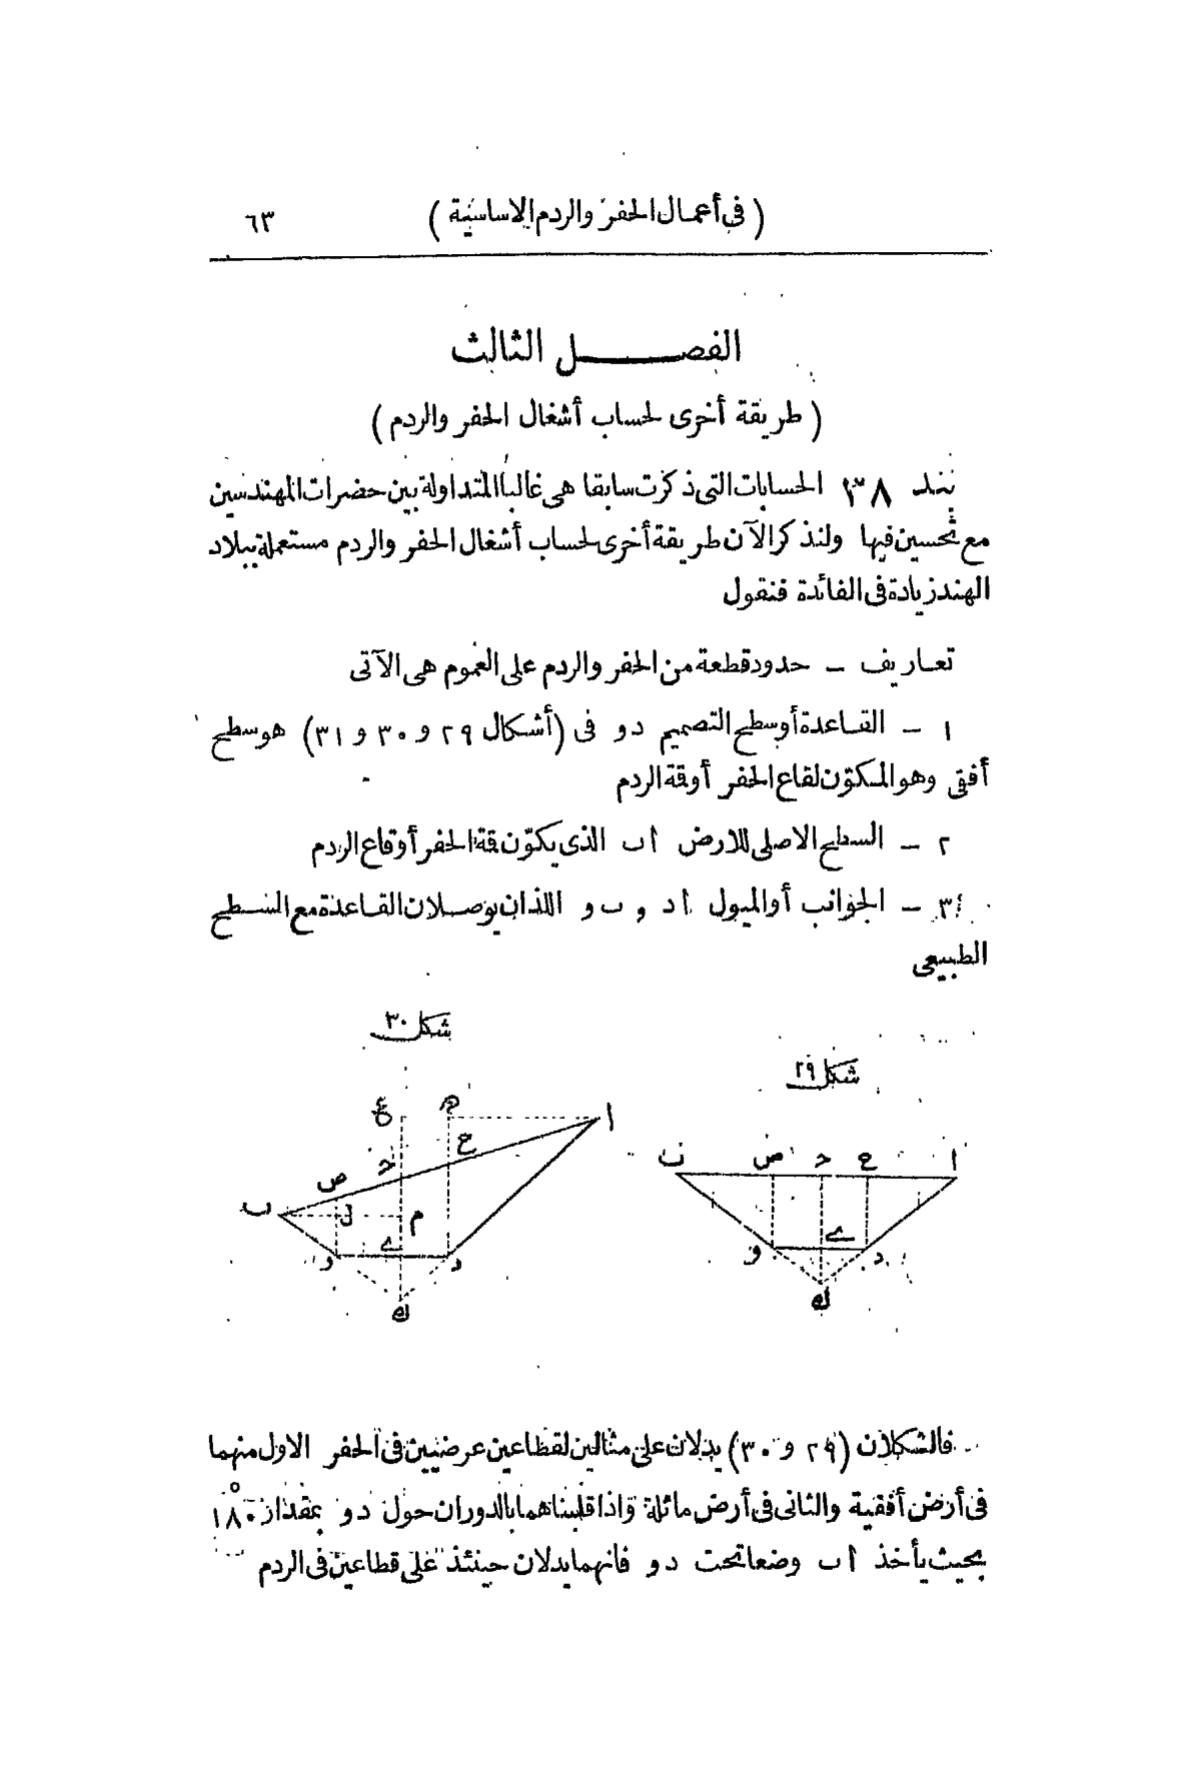 (فى أعمال الحفر والردم الاساسية) ٦٣
الفصل الثالث
(طريقة أخرى لحساب أشغال الحفر والردم)
بند ٣٨ الحسابات التى ذكرت سابقا هى غالبا المتداولة بين حضرات المهندسين
مع تحسين فيها ولنذكر الآن طريقة أخرى لحساب أشغال الحفر والردم مستعملة ببلاد
الهند زيادة فى الفائدة فنقول
تعاريف - حدود قطعة من الحفر والردم على العموم هى الآتى
١ - القاعدة أوسطح التصميم دو فى (أشكال ٢٩ و ٣٠ و ٣١) هو سطح
أفقى وهو المكوّن لقاع الحفر أوقة الردم
٢ - السطح الاصلى للارض اب الذى يكوّن قة الحفر أوقاع الردم
٣ - الجوانب أوالميول اد و ب و اللذان يوصلان القاعدة مع السطح
الطبيعى
شكل ٣٠
شكل ٢٩
ع ھ ا
ح
ص ء
ب ل م
و ے د
ك
ب ص ء ح ا
و ے د
ك
فالشكلان (٢٩ و ٣٠) يدلان على مثالين لقطاعين عرضيين فى الحفر الاول منهما
فى أرض أفقية والثانى فى أرض مائلة واذا قلبناهما بالدوران حول دو بمقدار ١٨٠°
بحيث يأخذ اب وضعا تحت دو فانهما يدلان حينئذ على قطاعين فى الردم